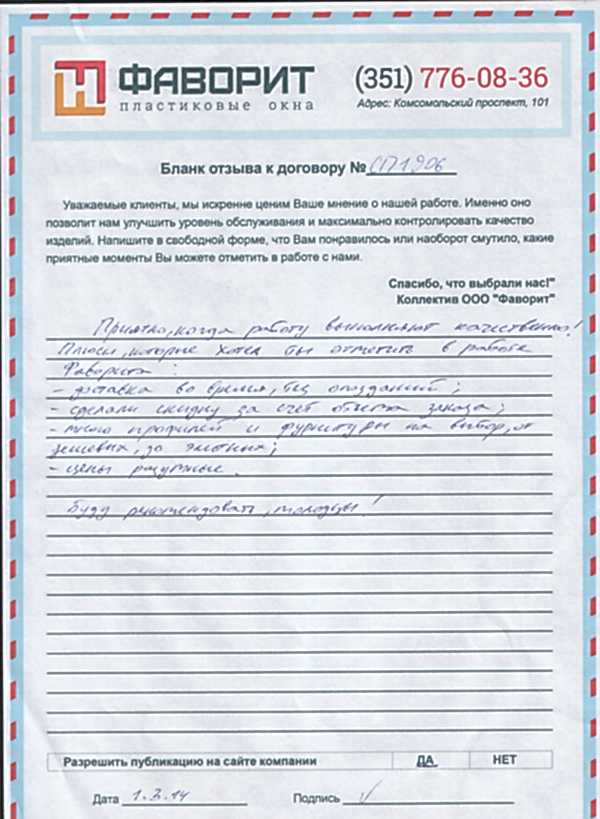 ФАВОРИТ
пластиковые окна
(351) 776-08-36
Адрес: Комсомольский проспект, 101
Бланк отзыва к договору № СП1906
Уважаемые клиенты, мы искренне ценим Ваше мнение о нашей работе. Именно оно
позволит нам улучшить уровень обслуживания и максимально контролировать качество
изделий. Напишите в свободной форме, что Вам понравилось или наоборот смутило, какие
приятные моменты Вы можете отметить в работе с нами.
Спасибо, что выбрали нас!"
Коллектив ООО "Фаворит"
Приятно, когда работу выполняют качественно!
Плюсы, которые хотел бы отметить в работе
Фаворита:
- доставка во время, без опозданий;
- сделали скидку за счёт объёма заказа;
- много профилей и фурнитуры на выбор, от
дешевых, до элитных;
- цены разумные.
Буду рекомендовать, молодцы!
Разрешить публикацию на сайте компании ДА НЕТ
Дата Подпись